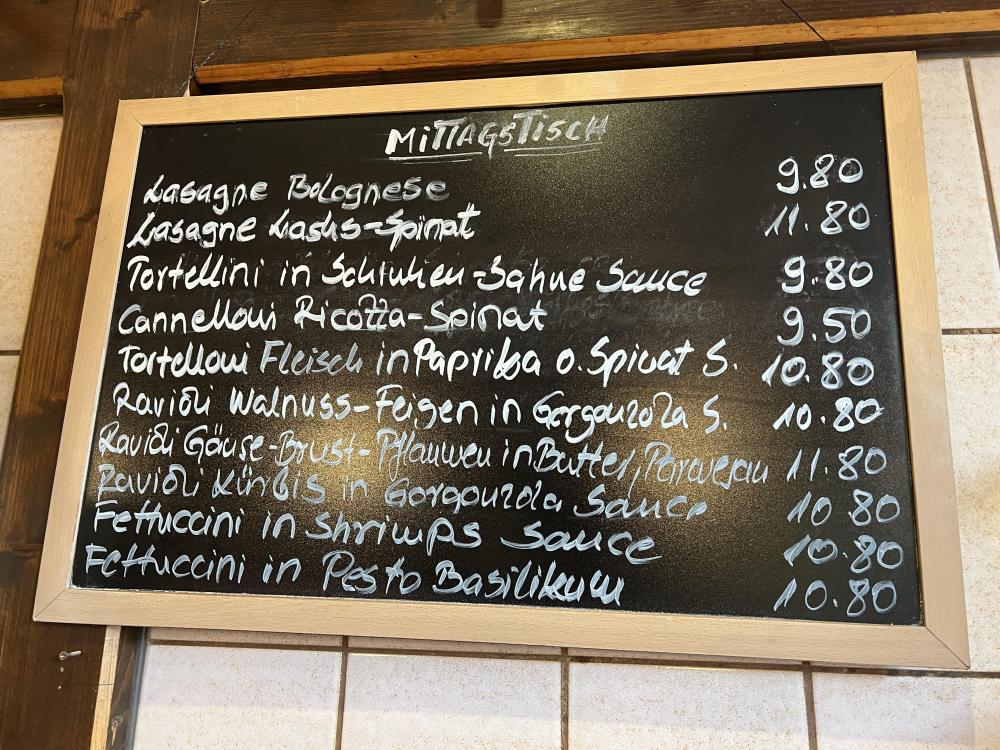 MiTTAGSTiSCH
Lasagne Bolognese 9.80
Lasagne Lachs-Spinat 11.80
Tortellini in Schinken-Sahne Sauce 9.80
Cannelloni Ricotta-Spinat 9.50
Tortelloni Fleisch in Paprika o. Spinat S. 10.80
Ravioli Walnuss-Feigen in Gorgonzola S. 10.80
Ravioli Gänse-Brust-Pflaumen in Butter, Parmesan 11.80
Ravioli Kürbis in Gorgonzola Sauce 10.80
Fettuccini in Shrimps Sauce 10.80
Fettuccini in Pesto Basilikum 10.80